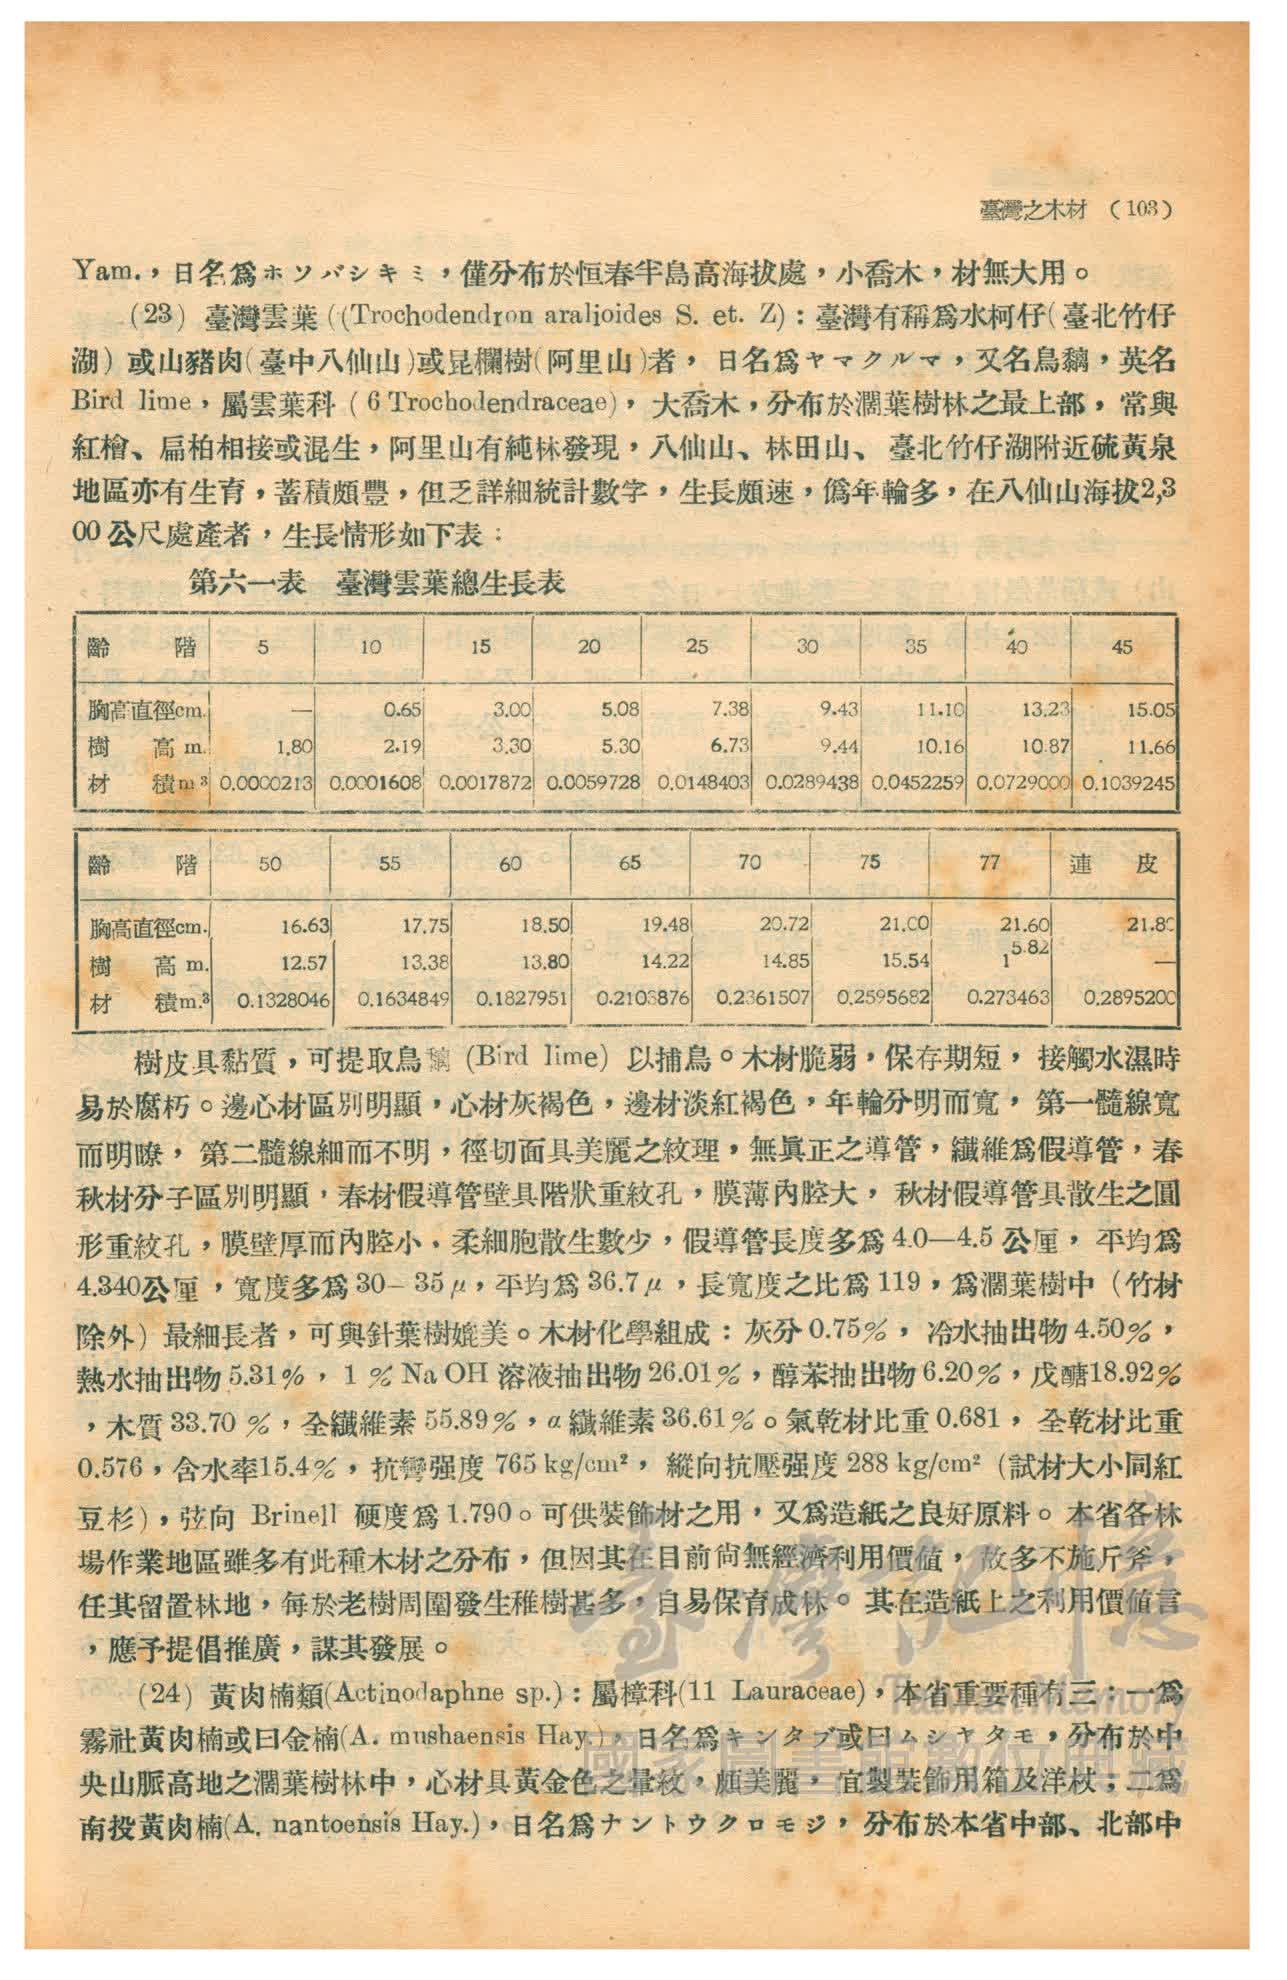 臺灣之木材 (103)
Yam.，日名爲ホソバシキミ，僅分布於恒春半島高海拔處，小喬木，材無大用。
(23) 臺灣雲葉((Trochodendron aralioides S. et. Z)：臺灣有稱爲水柯仔(臺北竹仔
湖)或山豬肉(臺中八仙山)或昆欄樹(阿里山)者，日名爲ヤマクルマ，又名鳥黐，英名
Bird lime，屬雲葉科 (6 Trochodendraceae)，大喬木，分布於濶葉樹林之最上部，常與
紅檜、扁柏相接或混生，阿里山有純林發現，八仙山、林田山、臺北竹仔湖附近硫黃泉
地區亦有生育，蓄積頗豐，但乏詳細統計數字，生長頗速，僞年輪多，在八仙山海拔2,3
00公尺處產者，生長情形如下表：
第六一表 臺灣雲葉總生長表
齡階 5 10 15 20 25 30 35 40 45
胸高直徑cm. — 0.65 3.00 5.08 7.38 9.43 11.10 13.23 15.05
樹高m. 1.80 2.19 3.30 5.30 6.73 9.44 10.16 10.87 11.66
材積m³ 0.0000213 0.0001608 0.0017872 0.0059728 0.0148403 0.0289438 0.0452259 0.0729000 0.1039245
齡階 50 55 60 65 70 75 77 連皮
胸高直徑cm. 16.63 17.75 18.50 19.48 20.72 21.00 21.60 21.80
樹高m. 12.57 13.38 13.80 14.22 14.85 15.54 15.82 —
材積m.³ 0.1328046 0.1634849 0.1827951 0.2361507 0.2595682 0.273463 0.2895200
樹皮具黏質，可提取鳥黐 (Bird lime) 以捕鳥。木材脆弱，保存期短，接觸水濕時
易於腐朽。邊心材區別明顯，心材灰褐色，邊材淡紅褐色，年輪分明而寬，第一髓線寬
而明瞭，第二髓線細而不明，徑切面具美麗之紋理，無眞正之導管，纖維爲假導管，春
秋材分子區別明顯，春材假導管壁具階狀重紋孔，膜薄內腔大，秋材假導管具散生之圓
形重紋孔，膜壁厚而內腔小．柔細胞散生數少，假導管長度多爲4.0—4.5公厘，平均爲
4.340公厘，寬度多爲30—35μ，平均爲36.7μ，長寬度之比爲119，爲濶葉樹中 (竹材
除外) 最細長者，可與針葉樹媲美。木材化學組成：灰分0.75%，冷水抽出物4.50%，
熱水抽出物5.31%，1 % Na OH 溶液抽出物26.01%，醇苯抽出物6.20%，戊醣18.92%
，木質33.70 %，全纖維素55.89%，α纖維素36.61%。氣乾材比重0.681，全乾材比重
0.576，含水率15.4%，抗彎强度765 kg/cm²，縱向抗壓强度288 kg/cm² (試材大小同紅
豆杉)，弦向 Brinell 硬度爲1.790。可供裝飾材之用，又爲造紙之良好原料。本省各林
場作業地區雖多有此種木材之分布，但因其在目前尙無經濟利用價値，故多不施斤斧，
任其留置林地，每於老樹周圍發生稚樹甚多，自易保育成林。其在造紙上之利用價値言
，應予提倡推廣，謀其發展。
(24) 黃肉楠類(Actinodaphne sp.)：屬樟科(11 Lauraceae)，本省重要種有三：一爲
霧社黃肉楠或曰金楠(A. mushaensis Hay.)，日名爲キンタブ或曰ムシヤタモ，分布於中
央山脈高地之濶葉樹林中，心材具黃金色之暈紋，頗美麗，宜製裝飾用箱及洋杖；二爲
南投黃肉楠(A. nantoensis Hay.)，日名爲ナントウクロモジ，分布於本省中部、北部中
臺灣記憶
Taiwan Memory
國家圖書館數位典藏